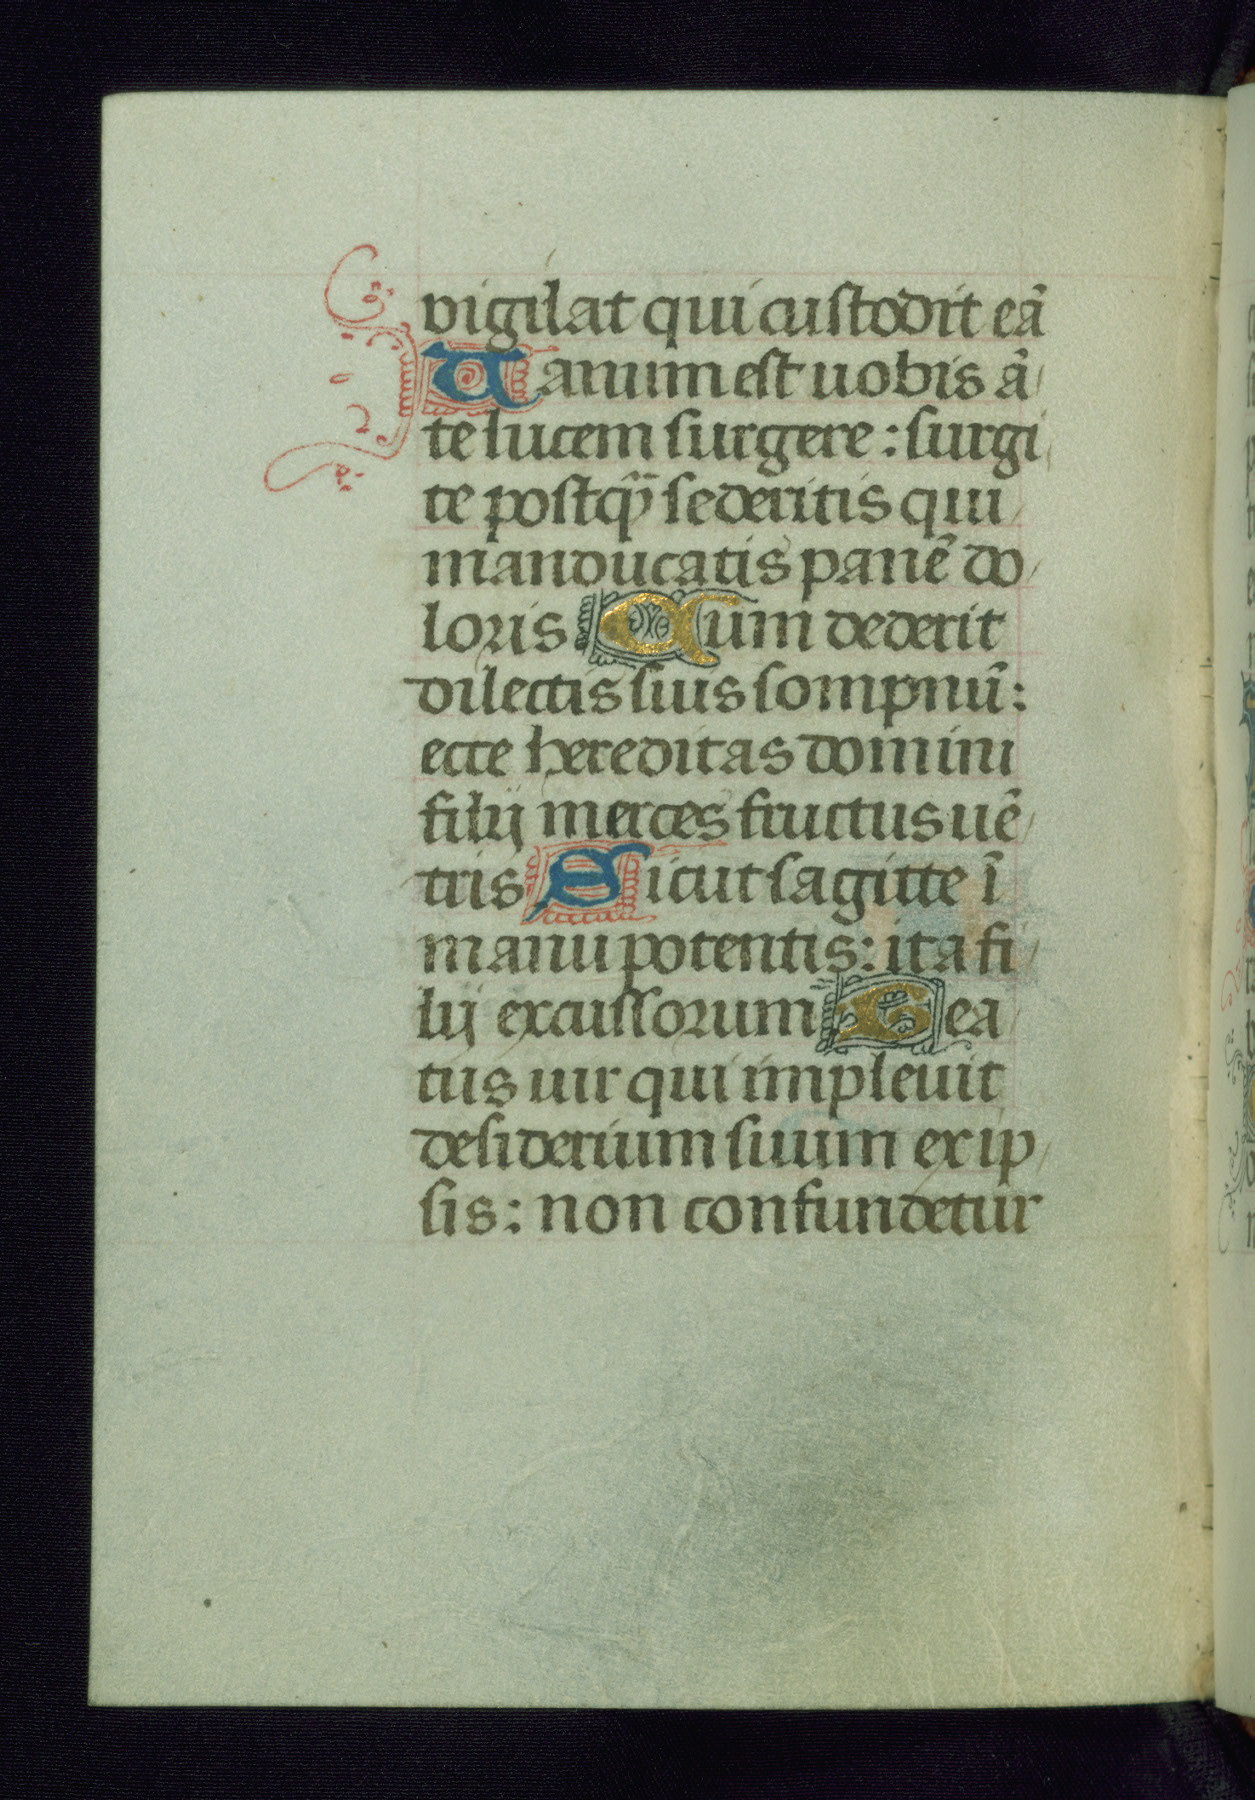 vigilat qui custodit eā
Uanum est uobis ā/
te lucem surgere: surgi/
te postq̄ sederitis qui/
manducatis panē do/
loris Cum dederit
dilectis suis sompnū:
ecce hereditas domini
filij merces fructus uē/
tris Sicut sagitte ī
manu potentis: ita fi/
lij excussorum Bea/
tus uir qui impleuit
desiderium suum ex ip/
sis: non confundetur